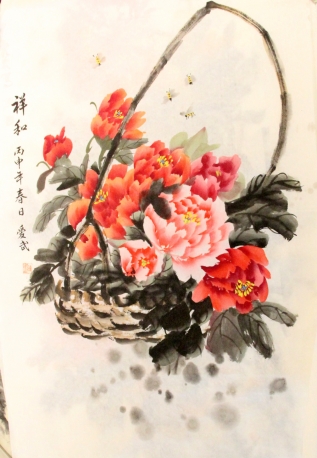 祥和
丙申年春日爱武